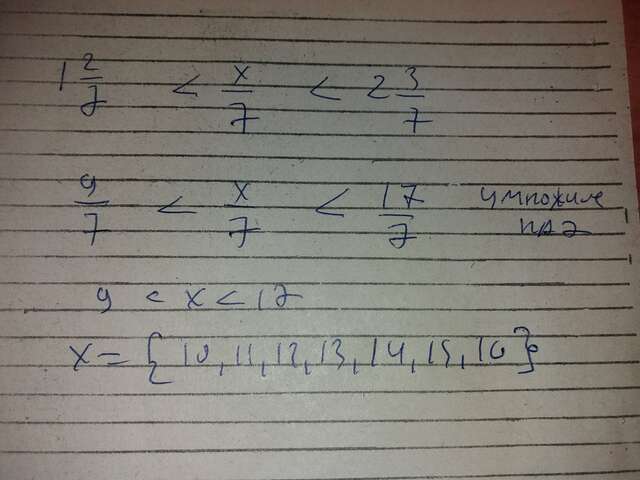 1 2/7 < x/7 < 2 3/7
9/7 < x/7 < 17/7 умножим на 7
9 < x < 17
x = {10, 11, 12, 13, 14, 15, 16}